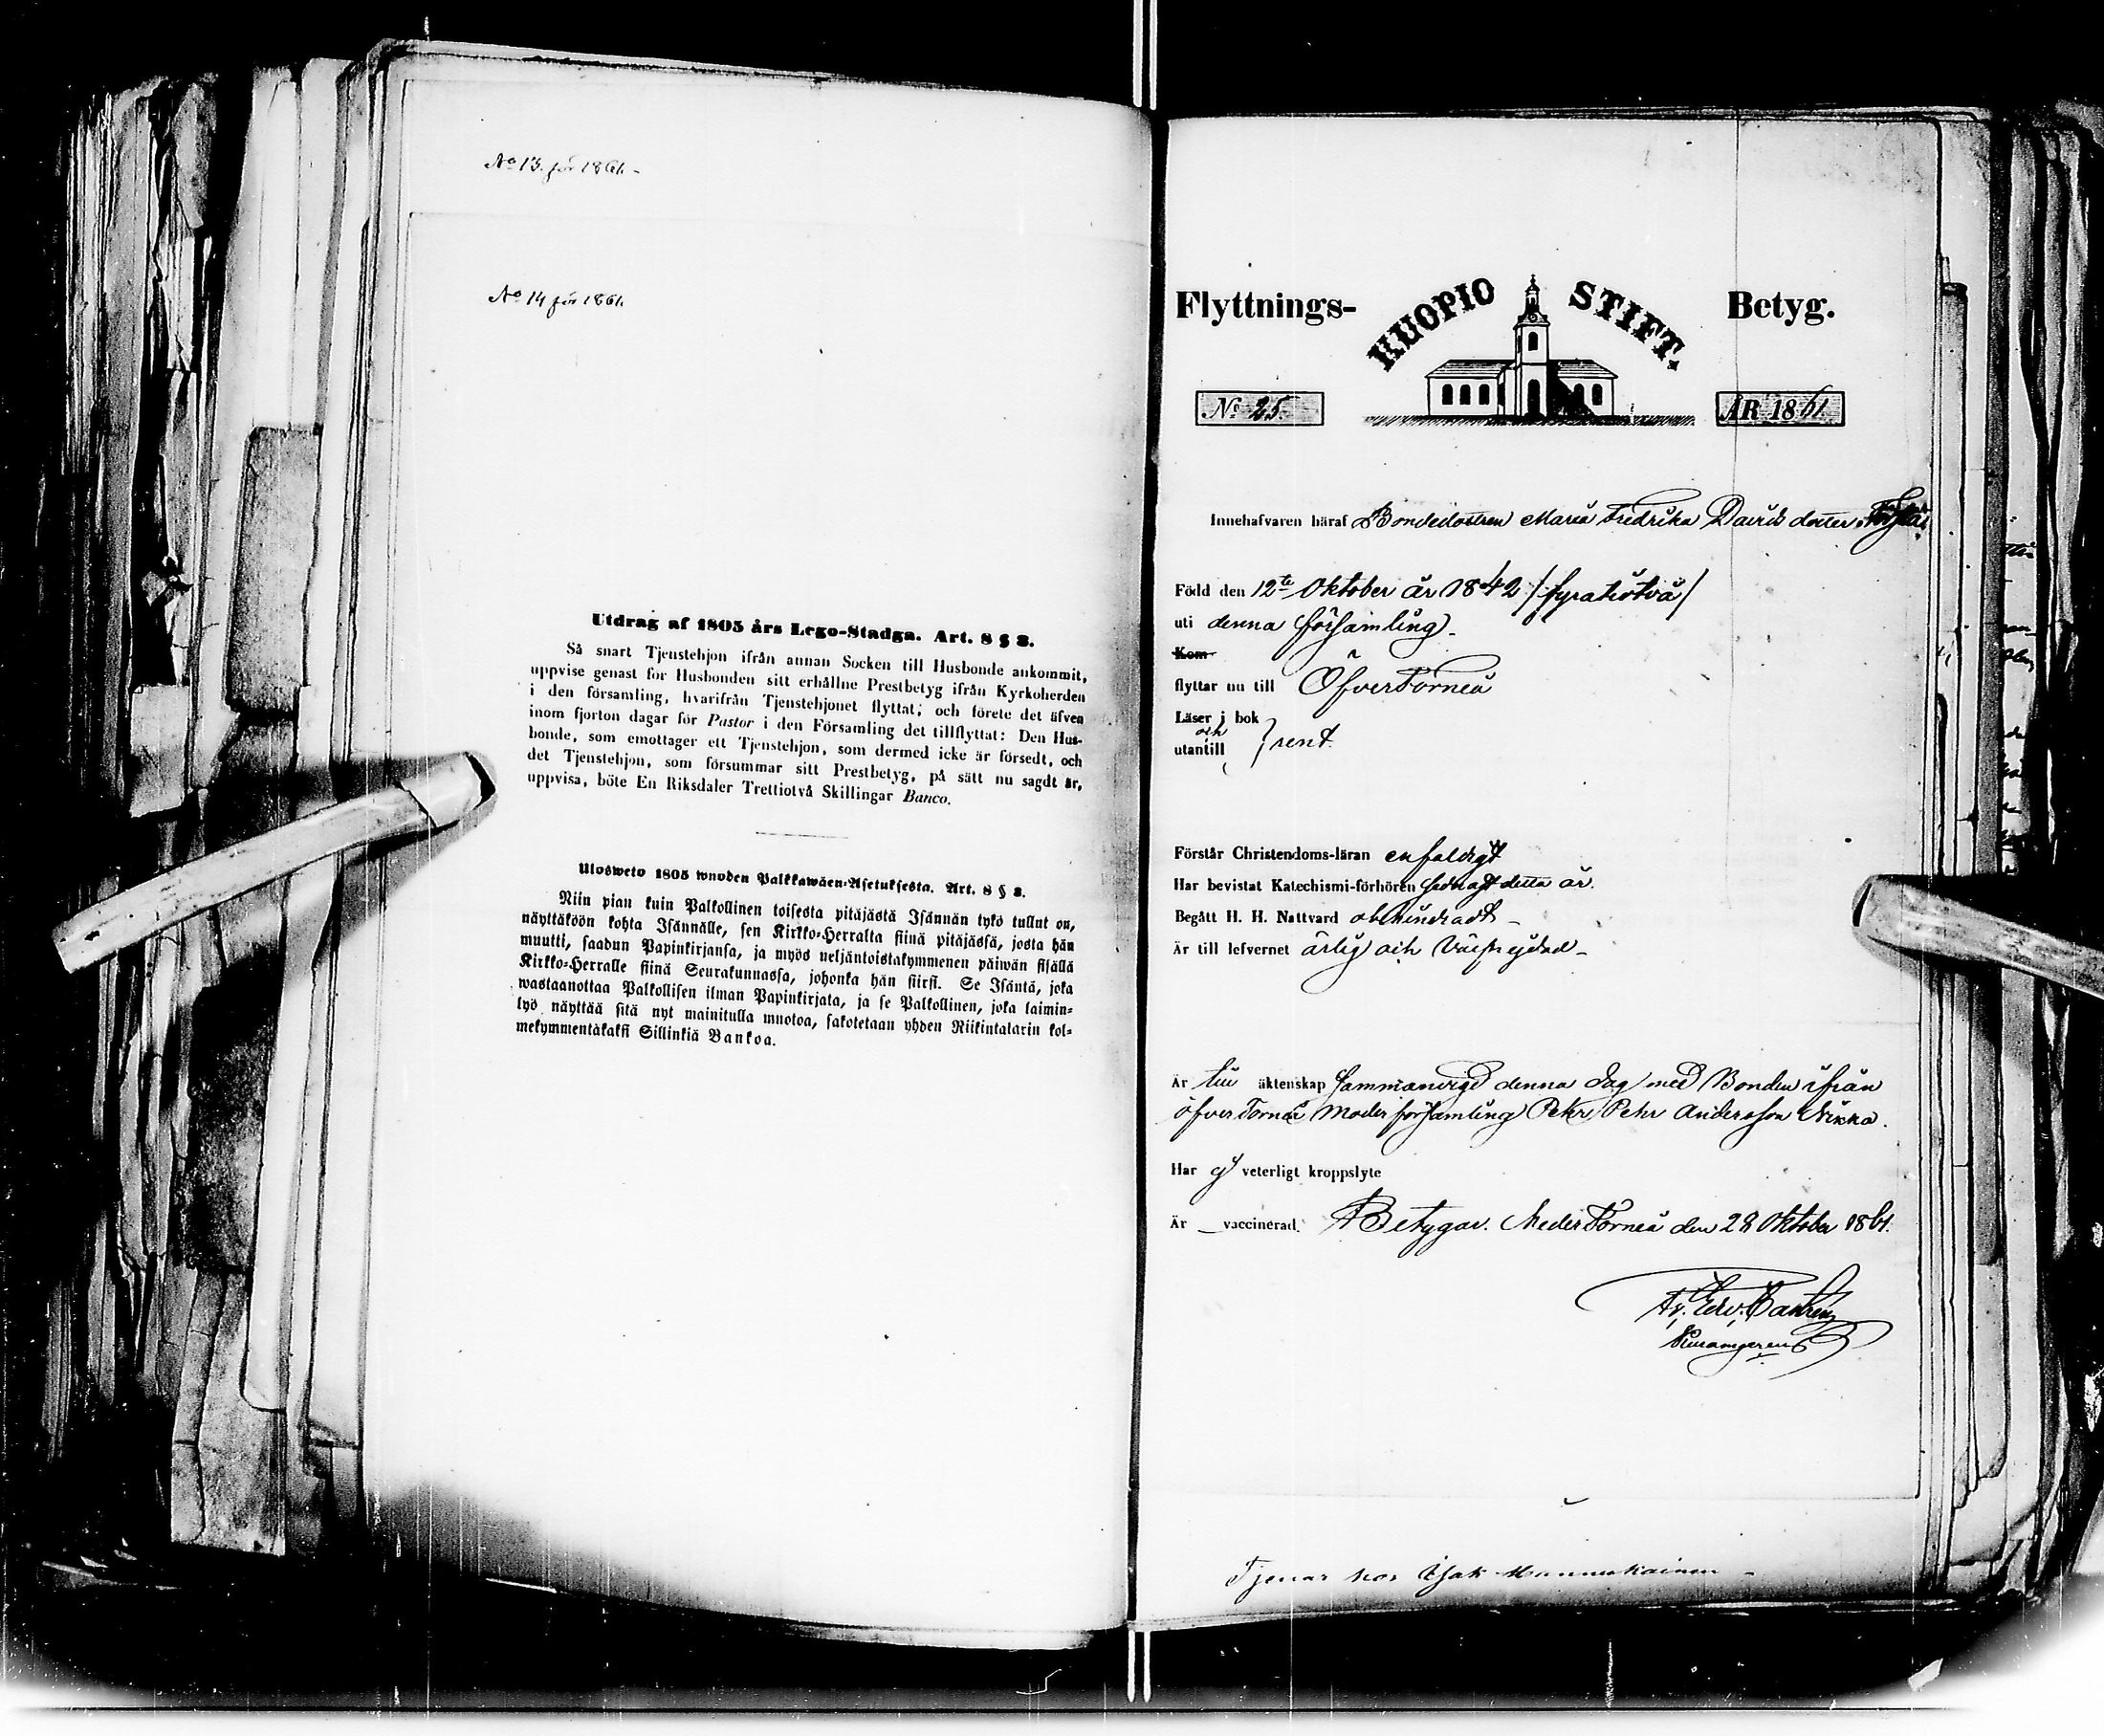 No 13. för 1861.-
No 14 för 1861.
Utdrag af 1805 års Lego-Stadga. Art. 8 § 3.
Så snart Tjenstehjon ifrån annan Socken till Husbonde ankommit,
uppvise genast för Husbonden sitt erhållne Prestbetyg ifrån Kyrkoherden
i den församling, hvarifrån Tjenstehjonet flyttat; och förete det äfven
inom fjorton dagar för Pastor i den Församling det tillflyttat: Den Hus-
bonde, som emottager ett Tjenstehjon, som dermed icke är försedt, och
det Tjenstehjon, som försummar sitt Prestbetyg, på sätt nu sagdt är,
uppvisa, böte En Riksdaler Trettiotvå Skillingar Banco.
Ulosweto 1805 wuoden Palkkawäen-Asetuksesta. Art. 8 § 3.
Niin pian kuin Palkollinen toisesta pitäjästä Isännän tykö tullut on,
näyttäköön kohta Isännälle, sen Kirkko-Herralta siinä pitäjässä, josta hän
muutti, saadun Papinkirjansa, ja myös neljäntoistakymmenen päiwän sisällä
Kirkko-Herralle siinä Seurakunnassa, johonka hän siirsi. Se Isäntä, joka
wastaanottaa Palkollisen ilman Papinkirjata, ja se Palkollinen, joka laimin-
lyö näyttää sitä nyt mainitulla muotoa, sakotetaan yhden Riikintalarin kol-
mekymmentäkaksi Sillinkiä Bankoa.
Flyttnings- KUOPIO STIFT. Betyg.
No 25. ÅR 1861
Innehafvaren häraf Bondedottren Maria Fredrika Davids dotter
Född den 12te Oktober år 1842 /fyratiotvå/
uti denna församling.
Kom
flyttar nu till ÖfverTorneå
Läser i bok
och
utantill } rent.
Förstår Christendoms-läran enfaldigt
Har bevistat Katechismi-förhören sednast detta år.
Begått H. H. Nattvard obehindradt -
Är till lefvernet ärlig och välfrejdad -
Är till äktenskap sammanvigd denna dag med Bonden ifrån
öfver Torneå Moderförsamling Pehr Pehr Andersson Nikka.
Har ej veterligt kroppslyte
Är _ vaccinerad. Betygar. NederTorneå den 28 Oktober 1861.
Tjenar hos Isak Mannukainen -